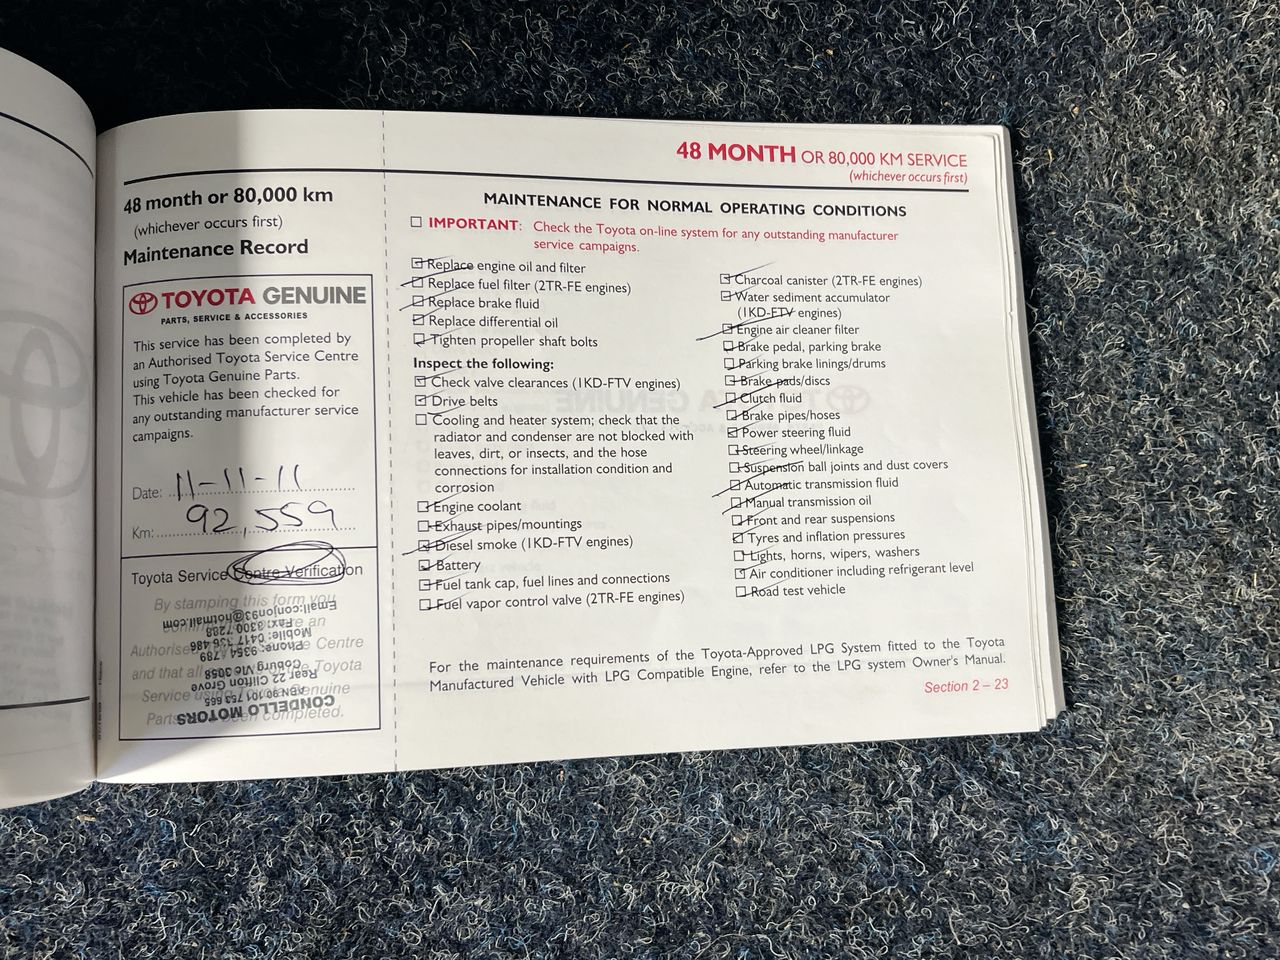 48 month or 80,000 km
(whichever occurs first)
Maintenance Record
TOYOTA GENUINE
PARTS, SERVICE & ACCESSORIES
This service has been completed by
an Authorised Toyota Service Centre
using Toyota Genuine Parts.
This vehicle has been checked for
any outstanding manufacturer service
campaigns.
Date: 11-11-11
Km: 92,559
Toyota Service Centre Verification
By stamping this form you
an
Authorised Centre
and that all Toyota
Service using Genuine
Parts been completed.
CONDELLO MOTORS
Rear 22 Clifton Grove
Coburg Vic 3058
Phone: 9354 4789
Mobile: 0417 336 486
Fax: 3300 7288
Email:conjon93@hotmail.com
48 MONTH OR 80,000 KM SERVICE
(whichever occurs first)
MAINTENANCE FOR NORMAL OPERATING CONDITIONS
IMPORTANT: Check the Toyota on-line system for any outstanding manufacturer
service campaigns.
Replace engine oil and filter
Replace fuel filter (2TR-FE engines)
Replace brake fluid
Replace differential oil
Tighten propeller shaft bolts
Inspect the following:
Check valve clearances (1KD-FTV engines)
Drive belts
Cooling and heater system; check that the
radiator and condenser are not blocked with
leaves, dirt, or insects, and the hose
connections for installation condition and
corrosion
Engine coolant
Exhaust pipes/mountings
Diesel smoke (1KD-FTV engines)
Battery
Fuel tank cap, fuel lines and connections
Fuel vapor control valve (2TR-FE engines)
Charcoal canister (2TR-FE engines)
Water sediment accumulator
(1KD-FTV engines)
Engine air cleaner filter
Brake pedal, parking brake
Parking brake linings/drums
Brake pads/discs
Clutch fluid
Brake pipes/hoses
Power steering fluid
Steering wheel/linkage
Suspension ball joints and dust covers
Automatic transmission fluid
Manual transmission oil
Front and rear suspensions
Tyres and inflation pressures
Lights, horns, wipers, washers
Air conditioner including refrigerant level
Road test vehicle
For the maintenance requirements of the Toyota-Approved LPG System fitted to the Toyota
Manufactured Vehicle with LPG Compatible Engine, refer to the LPG system Owner's Manual.
Section 2 – 23